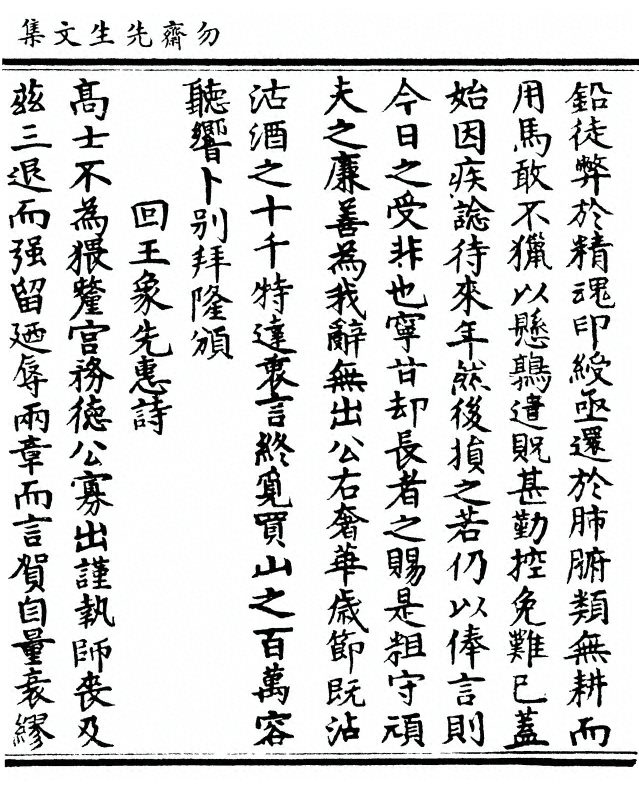 勿齋先生文集
鉛徒弊於精魂印綬亟還於肺腑類無耕而
用馬敢不獵以懸鶉遣貺甚勤控免難已蓋
始因疾諗待來年然後損之若仍以俸言則
今日之受非也寧甘却長者之賜是粗守頑
夫之廉善為我辭無出公右奢華歳節既沾
沽酒之十千特達衷言終覓買山之百萬容
聽響卜别拜隆頒
回王象先惠詩
髙士不為猥釐宫務徳公寡出謹執師喪及
兹三退而强留廼辱兩章而言賀自量衰繆